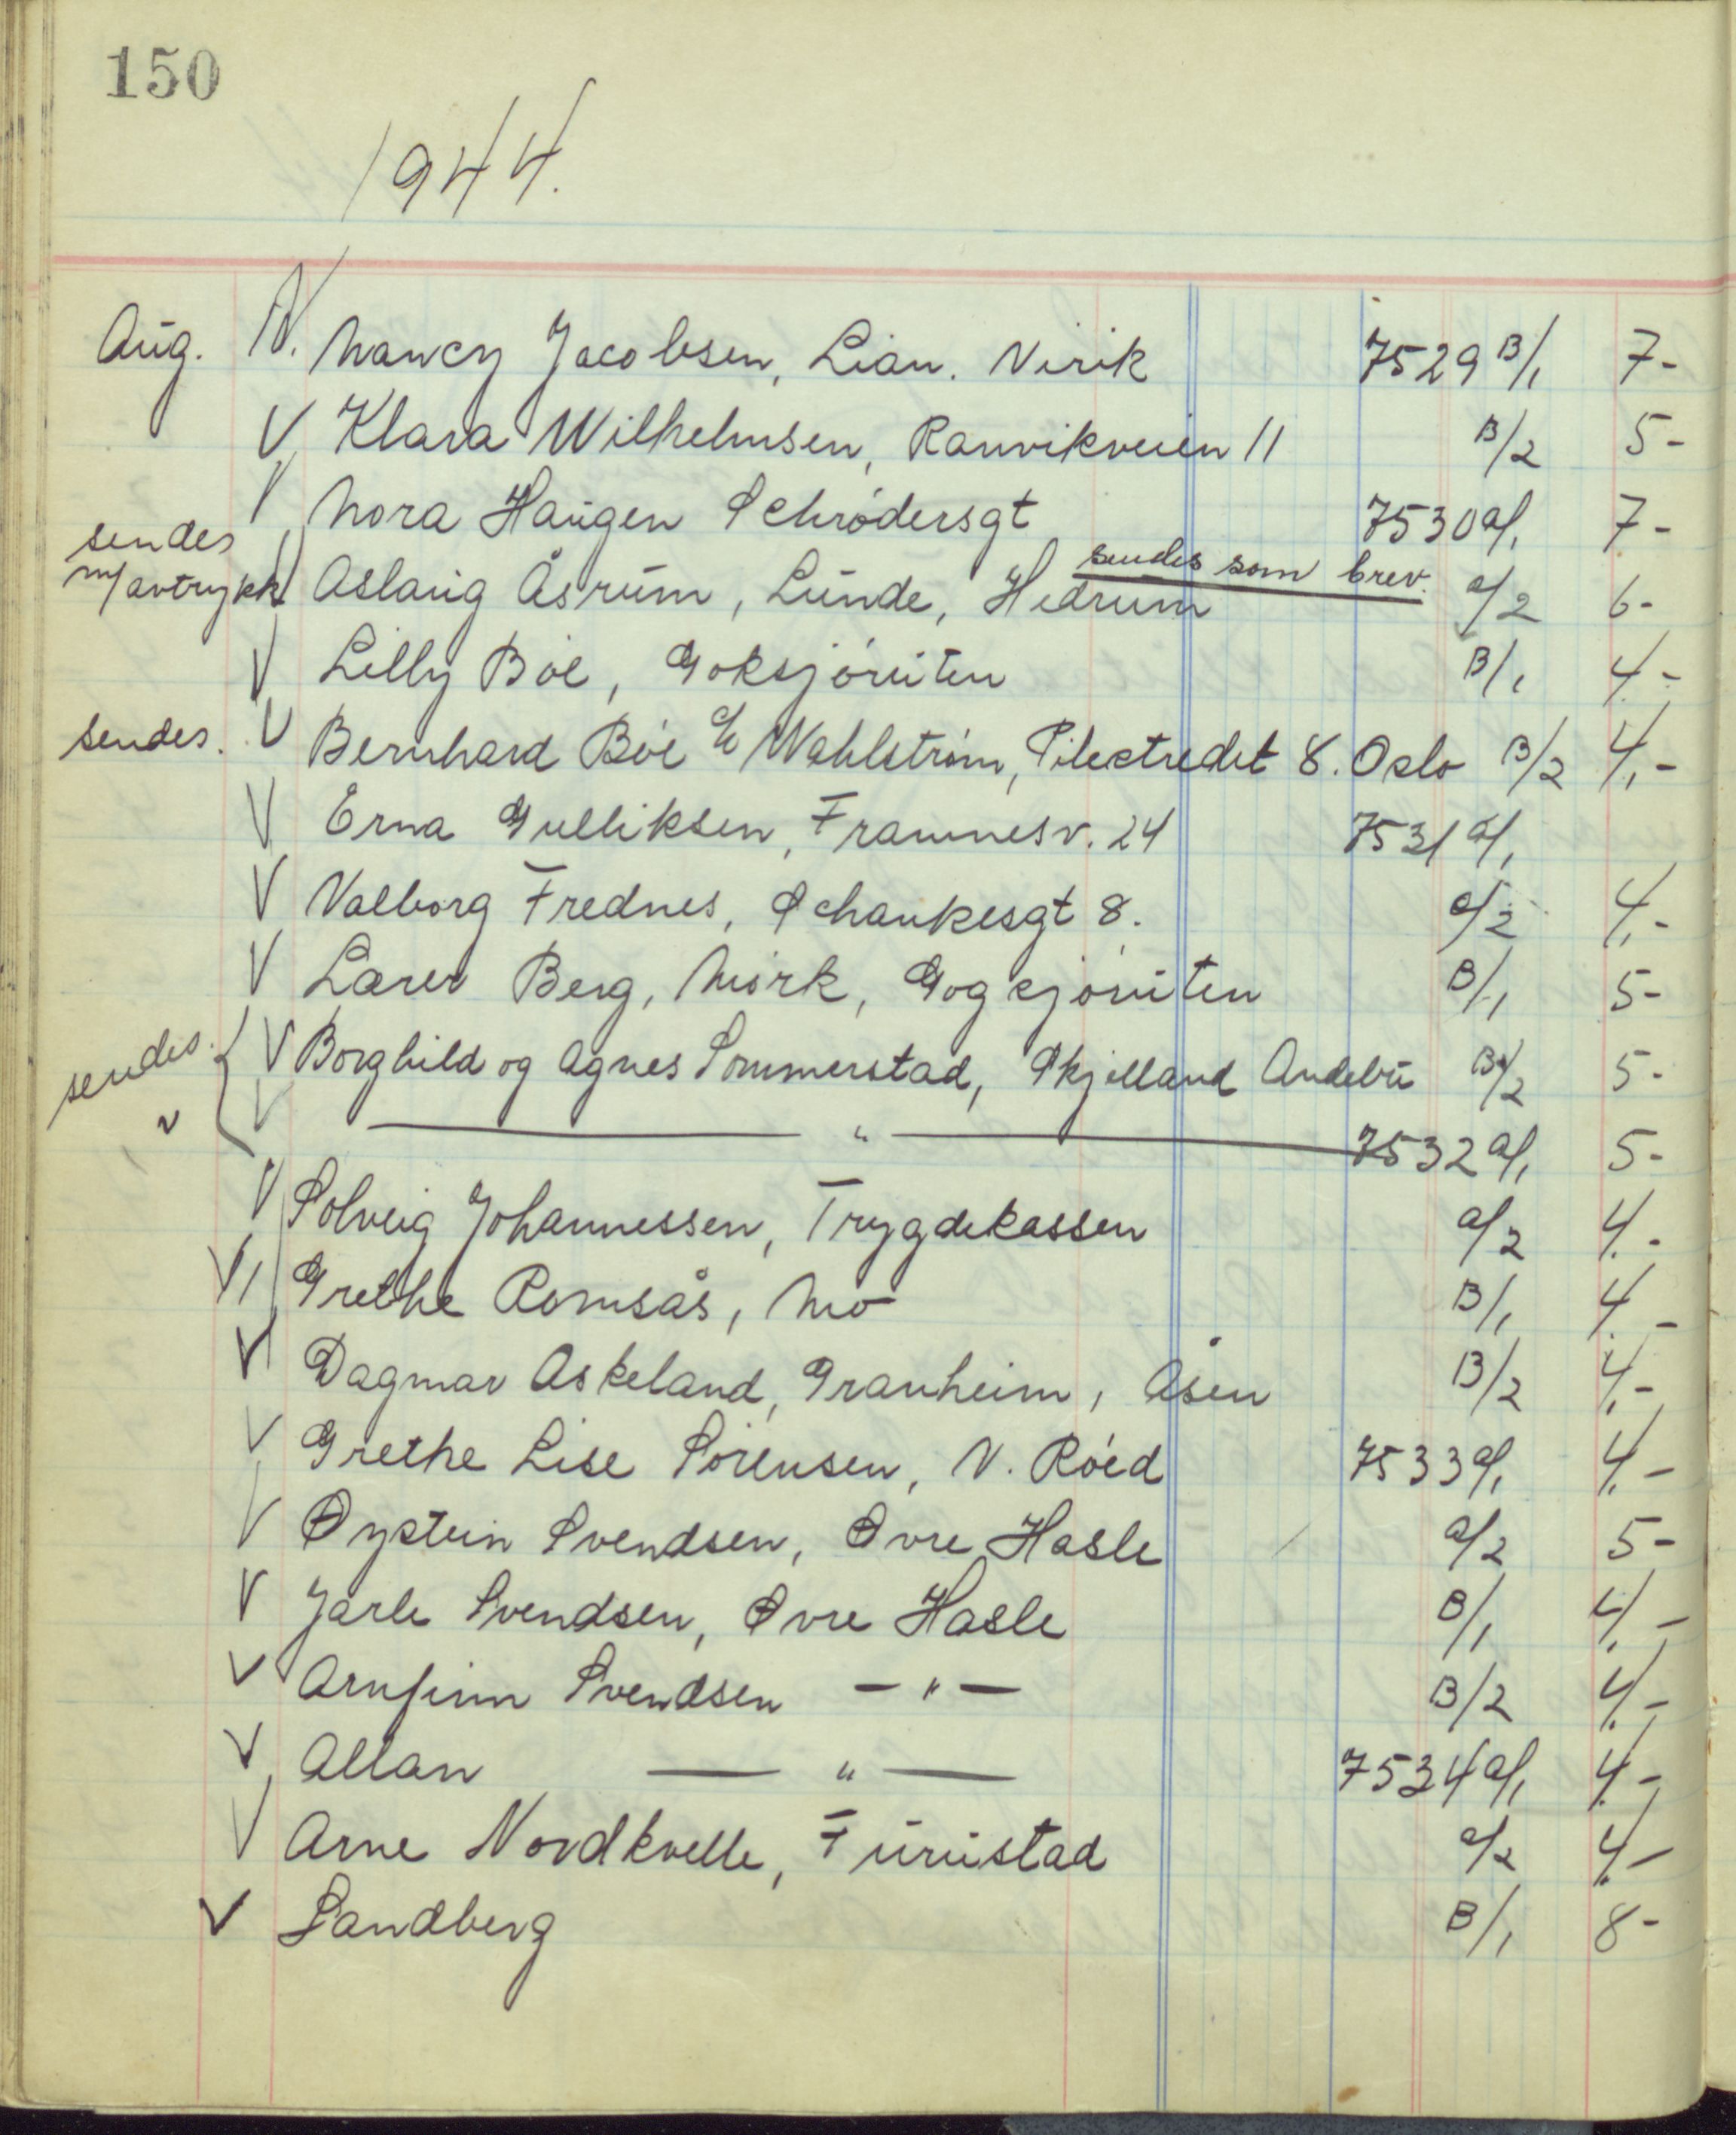 150
1944.
Aug. V. Nancy Jacobsen, Lian. Virik 7529 B/1 7-
V Klara Wilhelmsen, Ranvikveien 11 B/2 5-
V Nora Haugen Schrødersgt 7530 a/1 7-
sendes
m/avtrykk Aslaug Åsrum, Lunde, Hedrum sendes som brev. a/2 6-
V Lilly Bøe, Goksjøruten B/1 4-
sendes. V Bernhard Bøe c/o Wahlstrøm, Pilestredet 8. Oslo B/2 4,-
V Erna Gulliksen, Framnesv. 24 7531 a/1
V Valborg Frednes, Schankesgt 8. a/2 4,-
V Lærer Berg, Mørk, Gogsjøruten B/1 5-
sendes. V Borghild og Agnes Sommerstad, Skjelland Andebu B/2 5-
v V — " — 7532 a/1 5-
V Solveig Johannessen, Trygdekassen a/2 4.-
V Grethe Romsås, Mo B/1 4.-
V Dagmar Askeland, Granheim, Åsen B/2 4,-
V Grethe Lise Sørensen, V. Røed 7533 a/1 4,-
V Øystein Svendsen, Øvre Hasle a/2 5-
V Jarle Svendsen, Øvre Hasle B/1 4,-
V Arnfinn Svendsen — " — B/2 4,-
V Allan — " — 7534 a/1 4.-
V Arne Nordkvelle, Furustad a/2 4,-
V Sandberg B/1 8-